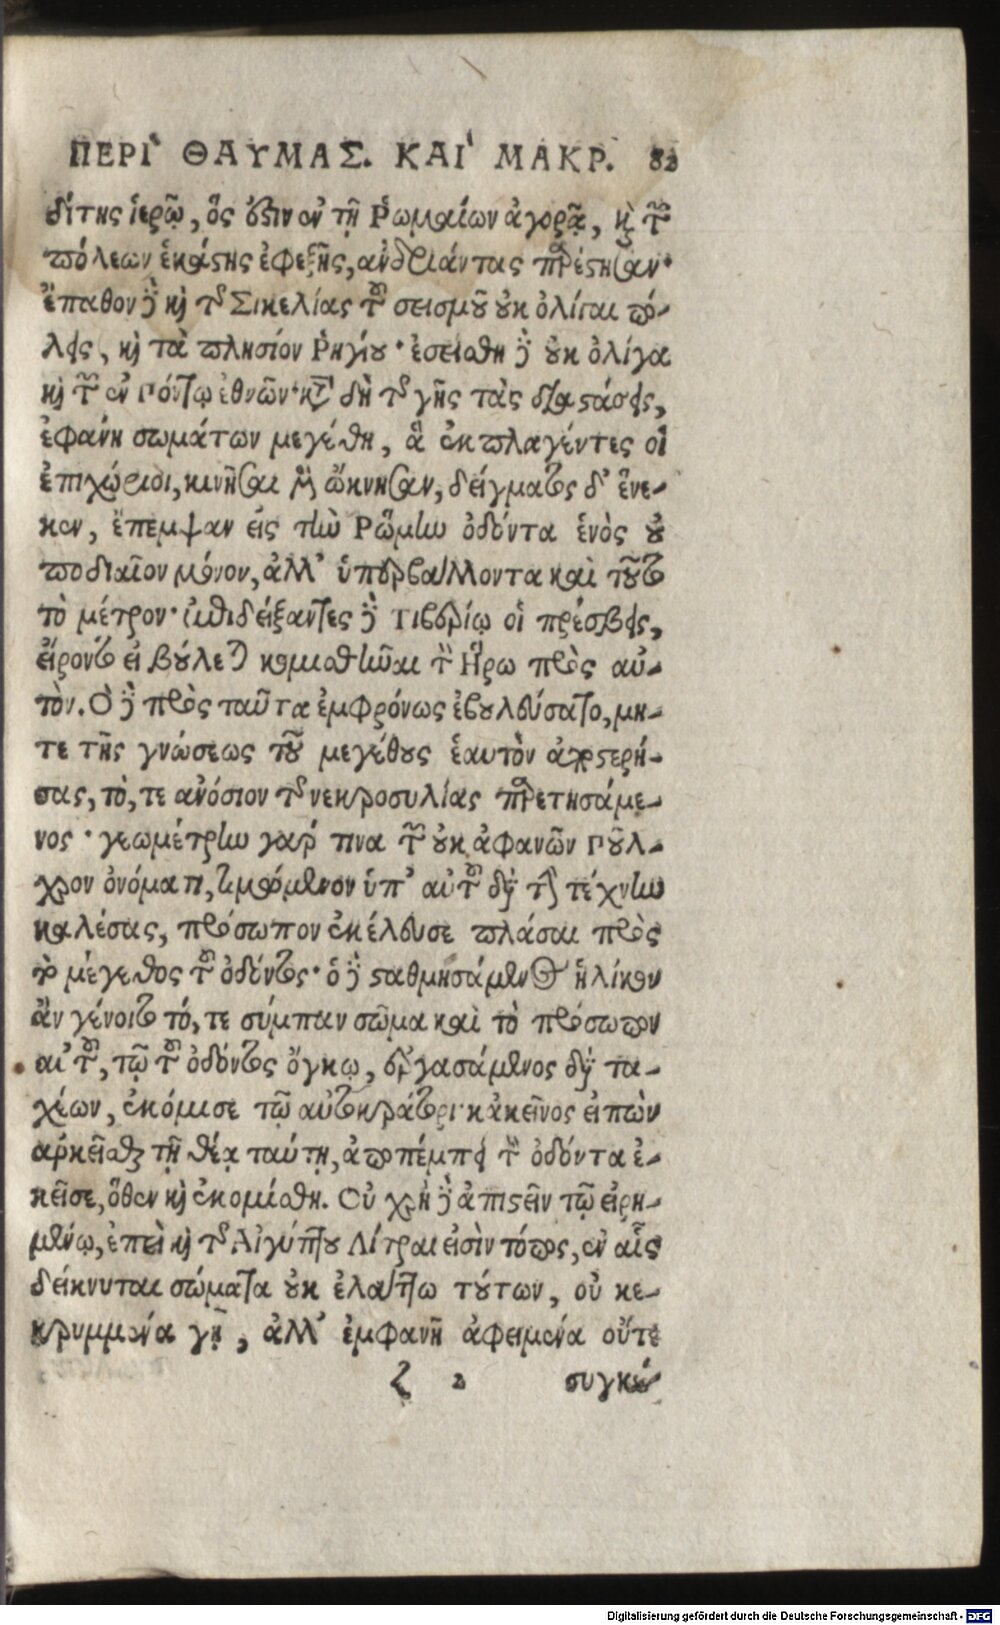 ΠΕΡῚ ΘΑΥΜΑΣ. ΚΑῚ ΜΑΚΡ. 82
δίτης ἱερῷ, ὅς ὅξιν ἐν τῇ Ῥωμαίων ἀγορᾷ, καὶ τῶν
πόλεων ἑκάστης ἐφεξῆς, ἀνδριάντας παρέστησαν·
ἔπαθον δὲ καὶ τῆς Σικελίας ὑπὸ τοῦ σεισμοῦ οὐκ ὀλίγαι πό-
λεις, καὶ τὰ πλησίον Ῥηγίου· ἐσείσθη δὲ οὐκ ὀλίγα
καὶ τῶν ἐν Πόντῳ ἐθνῶν· κατὰ δὴ τῆς γῆς τὰς διαστάσεις,
ἐφάνη σωμάτων μεγέθη, ἃ ἐκπλαγέντες οἱ
ἐπιχώριοι, κινῆσαι μὲν ὤκνησαν, δείγματος δ' ἕνε-
κεν, ἔπεμψαν εἰς τὴν Ῥώμην ὀδόντα ἑνὸς οὐ
ποδιαῖον μόνον, ἀλλ' ὑπερβάλλοντα καὶ τοῦτο
τὸ μέτρον· ἐπιδείξαντες δὲ Τιβερίῳ οἱ πρέσβεις,
εἴροντο εἰ βούλεται κομισθῆναι τὸν Ἥρω πρὸς αὐ-
τόν. Ὁ δὲ πρὸς ταῦτα ἐμφρόνως ἐβουλεύσατο, μή-
τε τῆς γνώσεως τοῦ μεγέθους ἑαυτὸν ἀποστερή-
σας, τό, τε ἀνόσιον τῆς νεκροσυλίας παρετησάμε-
νος· γεωμέτρην γάρ τινα τῶν οὐκ ἀφανῶν Ποῦλ-
χρον ὀνόματι, τιμώμενον ὑπ' αὐτοῦ διὰ τὴν τέχνην
καλέσας, πρόσωπον ἐκέλευσε πλάσαι πρὸς
τὸ μέγεθος τοῦ ὀδόντος· ὁ δὲ σταθμησάμενος ἡλίκον
ἂν γένοιτο τό, τε σύμπαν σῶμα καὶ τὸ πρόσωπον
αὐτοῦ, τῷ τοῦ ὀδόντος ὄγκῳ, ἐργασάμενος διὰ τα-
χέων, ἐκόμισε τῷ αὐτοκράτορι· κἀκεῖνος εἰπὼν
ἀρκεῖσθαι τῇ θέᾳ ταύτῃ, ἀποπέμπει τὸν ὀδόντα ἐ-
κεῖσε, ὅθεν καὶ ἐκομίσθη. Οὐ χρὴ δὲ ἀπιστεῖν τῷ εἰρη-
μένῳ, ἐπεὶ καὶ τῆς Αἰγύπτου Λίτραι εἰσὶν τόπος, ἐν αἷς
δείκνυται σώματα οὐκ ἐλάττω τούτων, οὐ κε-
κρυμμένα γῇ, ἀλλ' ἐμφανῆ ἀφειμένα οὔτε
ζ 2 συγκε-
Digitalisierung gefördert durch die Deutsche Forschungsgemeinschaft - DFG